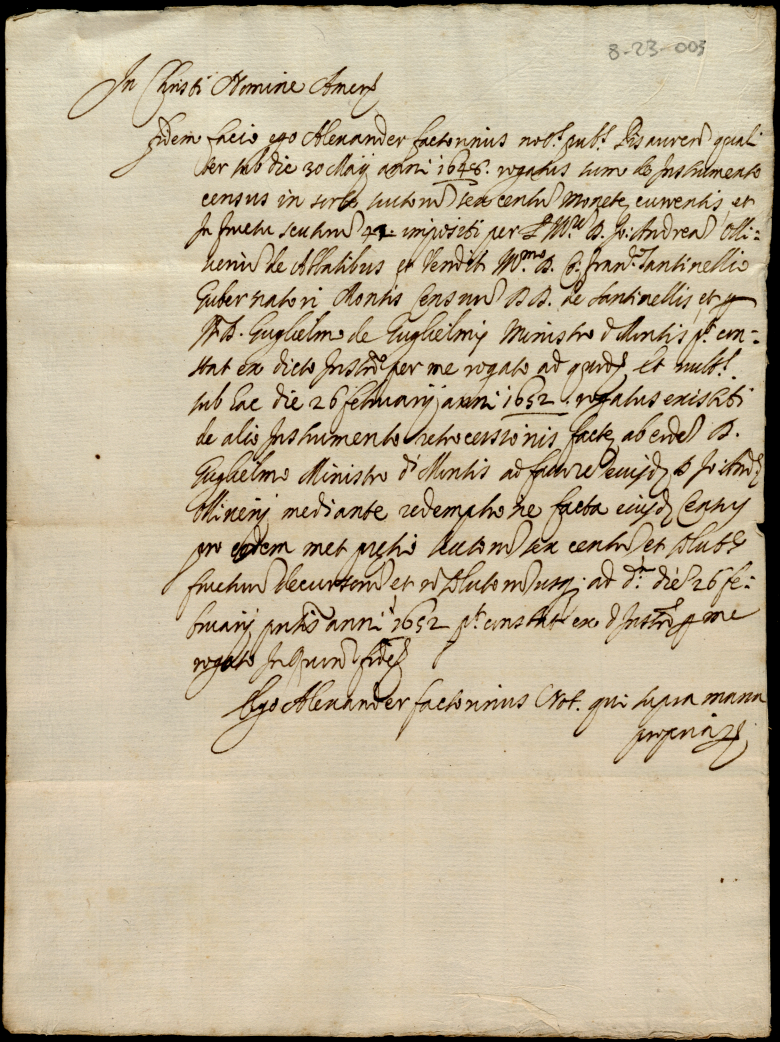 8-23-003
In Christi Nomine Amen
Fidem facio ego Alexander factorinius not.s pub.s Pisauren quali
ter sub die 30 Maij anni 1648. rogatus sum de Instrumento
census in sorte scutorum sex centum monete currentis, et
In fructu scutorum 42 impositi per D. Io: Andream Olli-
uerium de Abbatibus et Vendit Ill.mo D. Co: Fran.co Santinellio
Gubernatori Montis Censuum DD. de Santinellis, et p
D. Guglielmo de Guglielmis Ministro d Montis pt con-
stat ex dicto Instro per me rogato ad quod Et
sub hac die 26 februarij anni 1652. rogatus extitisti
de alio Instrumento retrocessionis facte ab eodem D.
Guglielmo Ministro di Montis ad favore eiusd D Io: And
Olliuerij mediante redemptione facta eiusd Census
pro eodem met pretio scutorum sex centum et solutis
fructum decursorum et n solutorum usq. ad d. diem 26 fe-
bruarij pntis anni 1652 pt constat ex d Instro p me
rogato In quorum fidem
Ego Alexander factorinius Not. qui supra manu
propria